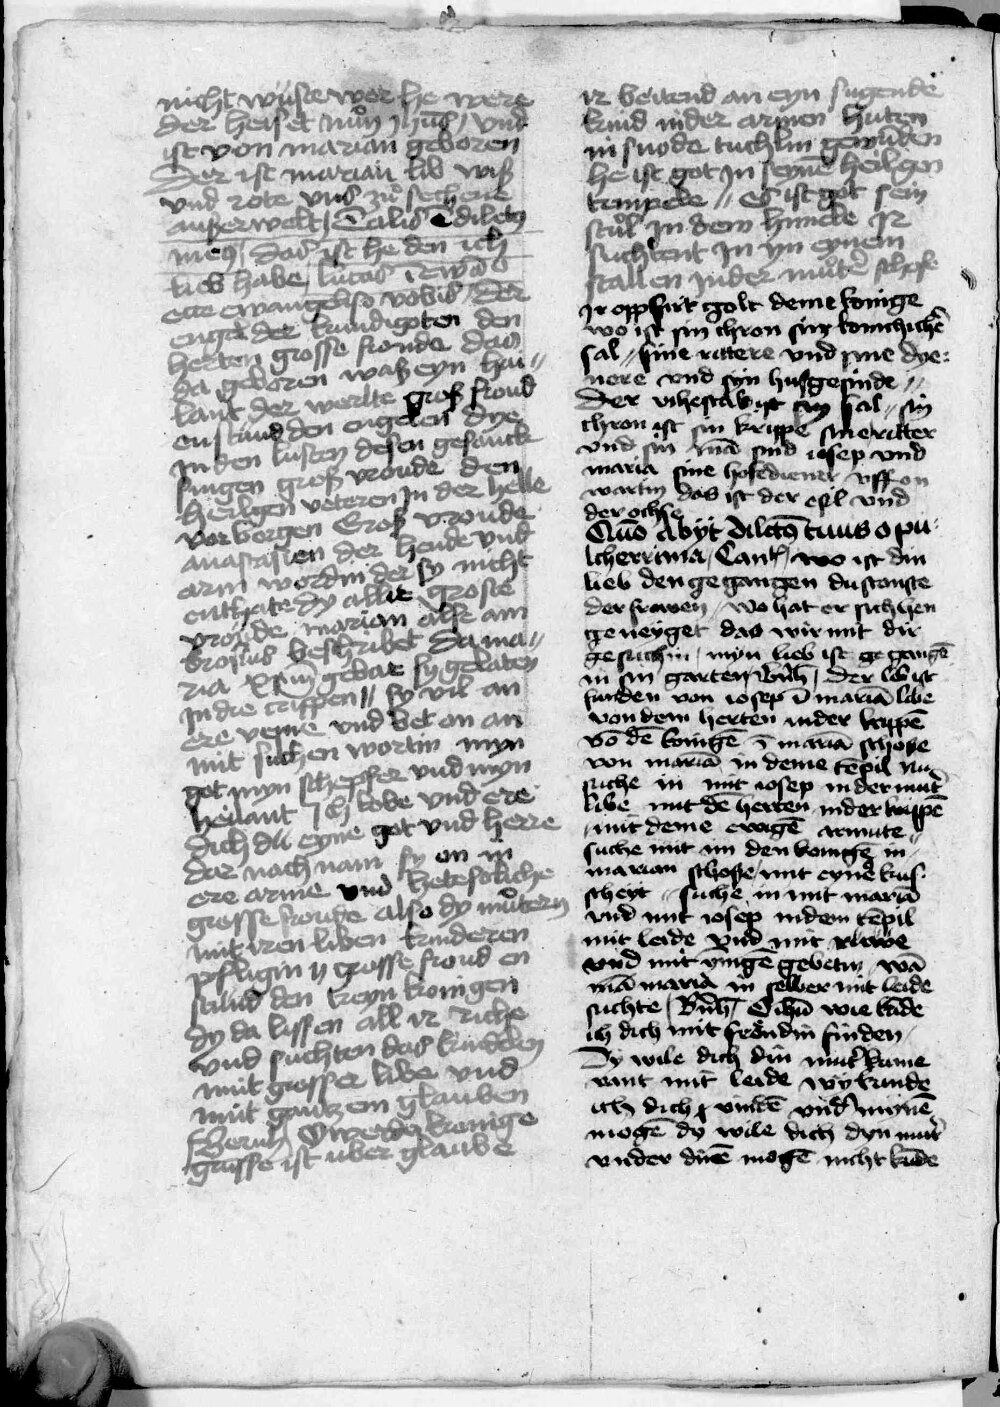 nicht wuste wer he were
der heiset nuͦn ihūs / und
ist von marian geboren
Der ist marian lib wiß
und rote uns zuͦ sechene
außerwelt / Talis dilectꝯ
meꝯ / das ist he den ich
lieb habe / lucas
ecce ewangeliso vobis / der
engel der kundigoten den
herten grosse froude das
da geboren waß eyn hai-
lant der werlte groß froud
enstund den engelen dye
in den lufften desen gesanck
sungen groß vroude den
heilgen veteren in der helle
vorborgen Groß vroude
anastasien der hende und
arm wordin der sy nicht
enthate dy allir groste
vroude marian alse am
brosius beschribet da ma-
ria xp̄m gebar sy geleiten
in die crippen // sy vil an
ere venie und bet on an
mit suchen wortin myn
got myn schepfer und myn
heilant Ich lobe und ere
dich du eyne got und herre
dar nach nam sy on in
ere arme und helesoliche
grosse froude also dy muͦtern
mit iren liben kinderen
pfligin // grosse froud en
stund den treyn konigen
dy da lissen all ir riche
und suchten das kindelen
mit grosser libe und
mit gantzem glauben
Bernh O werden konige
grosse ist uber glaube
ir betend an eyn sugende
kind in der armen huten
in snode tuchlin gewūden
he ist got in seynē heilgen
tempele // Es ist got sein
stuͦl in dem himele Ir
suchtent in in eynem
stallen in der muͦter schose
Ir oppfirt golt deme konige
wo ist sin thron sin konichichē
sal // sine rittere und sine dye-
nere und syn husgesinde //
Der vihestal ist syn sal // sin
thron ist sin krippe sine ritter
und sin mā sind iosep und
maria sine hofediener uff on
wartin das ist der esil und
der ochse
Quo Abyt dilctꝯ tuus o pul-
cherrima / Cant / wo ist din
lieb den gegangen du schonste
der frawen / wo hat er sich hen
geneyget das wir mit dir
gesuchin / myn lieb ist gegangē
in sin garten / Bnh / der lib ist
funden von iosep ī mariā libe
von dem herten in der krippē
vō dē konigē ī mariā schosse
von mariā in deme tēpil nu
suche in mit iosep in der mut
libe mit dē herten in der krippē
mit deme ewigē armute //
suche mit im den konige in
marian schosse / mit eyner kus
scheyt // suche in mit mariā
und mit iosep in dem tēpil
mit leide und mit ruwe
und mit ynigē gebetin / wā
mā maria in selber mit leide
suchte / Bnh / O ihū wie kāde
ich dich mit froͤndin finden /
Dy wile dich din muͦt kume
vant mit leide wy kunde
ich dich vindē und mynē
mogē dy wile dich dyn mut
under dinē mogē nicht kūde